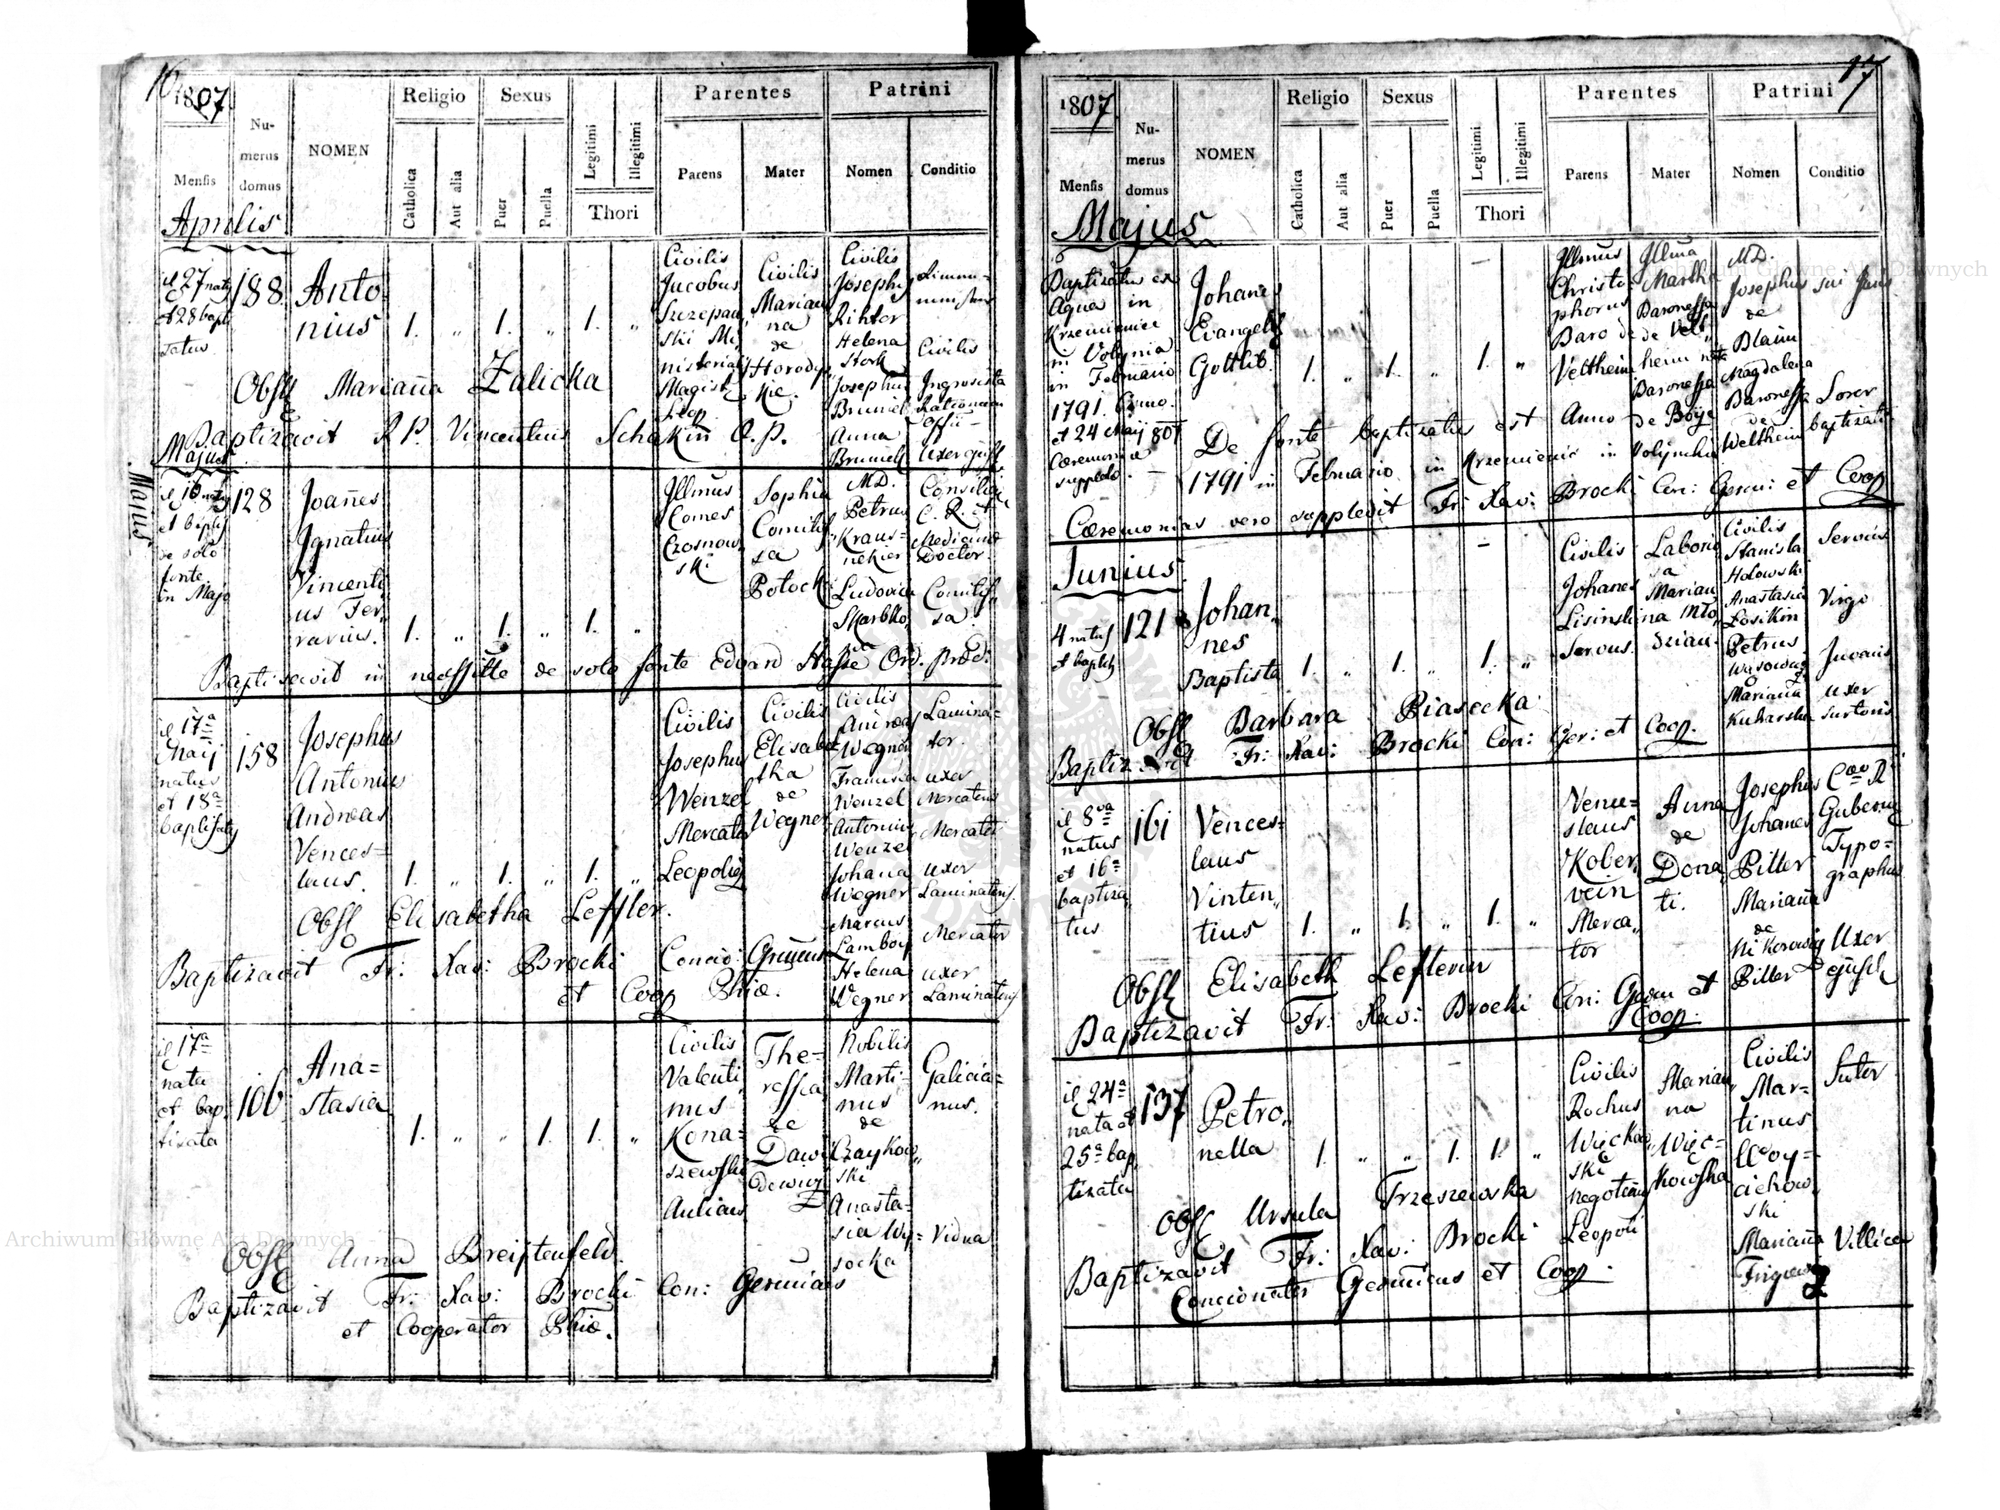 16
1807
Mensis
Numerus domus
NOMEN
Religio
Catholica
Aut alia
Sexus
Puer
Puella
Legitimi
Illegitimi
Thori
Parentes
Parens
Mater
Patrini
Nomen
Conditio
Aprilis
27 nat9
et 28 bapt
188
Anto
nius
1. „ 1. 1. „
Civilis
Jacobus
Szczepan
ski Mi
nisterialis
Magist.
Leop.
Civilis
Marian
na
de
Horodys
kie.
Civilis
Josephus
Rihter
Helena
Stork
Josephus
Brunek
Anna
Brunek
Civilis
Ingrosista
Obst Marianna Zalicka
Baptizavit R P. Vincentius Schakin O. P.
Majus
Maius
16 nat9
et baptis
de solo
fonte
in Majo
128
Joañes
Ignatius
Vincenti
us Fer
rarius.
1. „ 1. „ 1. „
Illmus
Comes
Czosnow
ski
Sophia
Comitis
sa
Potocki
MD.
Petrus
Kraus
nekier
Ludovica
Skarbko
Consiliar
C. R. et
Medicinæ
Doctor
Comitis
sa
Baptisavit in necessitte de solo fonte Edvard Hasse Ord. Præd.
17a
Maij
natus
et 18a
baptisat9
158
Josephus
Antonius
Andreas
Vences=
laus.
1. „ 1. „ 1. „
Civilis
Josephus
Wenzel
Mercator
Leopolis
Civilis
Elisabe
tha
de
Wegner
Civilis
Andreas
Wegner
Francisca
Wenzel
Antonius
Wenzel
Johana
Wegner
Marcus
Lamboy
Helena
Wegner
Lamina=
tor.
uxer
Mercatoris
Mercator
uxer
Laminatoris
Mercator
uxer
Laminatoris
Obst Elisabetha Leffler.
Baptizavit Fr: Xav: Brocki Concio: Germus
et Coop Phiæ.
17a
nata
et bap.
tizata
106
Ana=
stasia
1. „ „ 1. 1. „
Civilis
Valenti
nus
Kona=
szewski
Aulicus
The=
ressia
de
Dawi
dowicz
Nobilis
Marti=
nus
de
Czaykow
ski
Anasta=
sia Wy=
socka
Galicia=
nus.
Vidua
Obst Anna Breiftenfeld.
Baptizavit Fr: Xav: Brocki Con: Germanis
et Cooperator Phiæ.
17
1807
Mensis
Numerus domus
NOMEN
Religio
Catholica
Aut alia
Sexus
Puer
Puella
Legitimi
Illegitimi
Thori
Parentes
Parens
Mater
Patrini
Nomen
Conditio
Majus
Baptizatus ex
Aqua in
Krzemienice
in Volynia
in Februario
1791. Anno.
et 24 Maij 807
Cæremoniæ
suppleto.
Johanes
Evangelis
Gottlib.
1. „ 1. „ 1. „
Illmus
Christo
phorus
Baro de
Veltheim
Illma
Martha
Baronessa
de Velt
heim nata
Baronessa
de Böye
MD.
Josephus
de
Blaim
Magdalena
Baronessa
de
Weltheim
Soror
baptizati
De fonte baptizatus est Anno
1791 in Februario in Krzemienic in Volynchia
Cæremonias vero supplevit Fr: Xav: Brocki Con: Germ: et Coop
Junius
4 natus
et baptis
121
Johan
nes
Baptista
1. „ 1. „ 1. „
Civilis
Johanes
Lisinski
Servus.
Laborio
sa
Marian
na Mło
dzian.
Civilis
Stanisla
Holowski
Anastasia
Losikin
Petrus
Wąsowicz
Mariana
Kucharska
Servus
Virgo
Juvenis
uxer
Sartoris
Obst Barbara Piasecka
Baptizavit Fr: Xav: Brocki Con: Ger: et Coop.
8va
natus
et 16a
baptiza
tus
161
Vences=
laus
Vinten„
tius
1. „ 1. „ 1. „
Vence=
slaus
Kober
vein
Merca„
tor
Anna
de
Dona
ti.
Josephus
Johanes
Pitter
Mariana
de
Nikorowicz
Pitter
Cæo R
Gubernij
Typo=
graphus
Uxer
Ejusd
Obst Elisabeth Lefterin
Baptizavit Fr: Xav: Brocki Con: Germ et
Coop.
24a
nata et
25a bap„
tizata
137
Petro„
nella
1. „ „ 1. 1. „
Civilis
Rochus
Więckow
ski
negotians
Leopoli
Marian„
na
Więc=
kowska
Civilis
Mar=
tinus
Woy=
ciehow„
ski
Mariana
Sutor
Villica
Obst Ursula Trzeszewska
Baptizavit Fr: Xav: Brocki
Concionator Germicus et Coop.
Archiwum Główne Akt Dawnych
Archiwum Główne Akt Dawnych